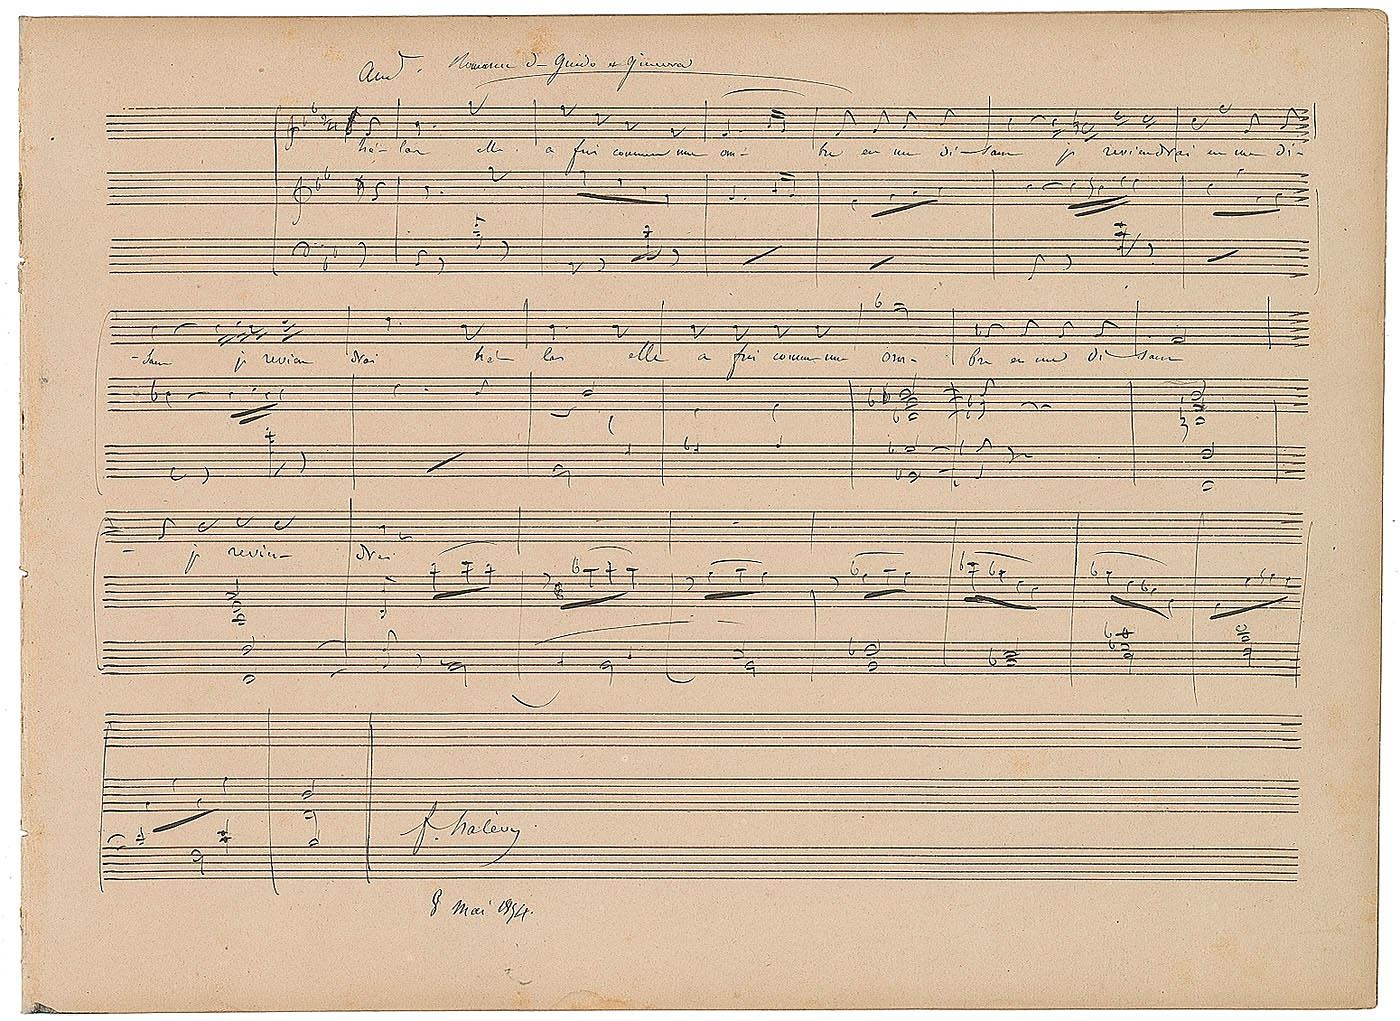 And. Romance de Guido et Ginevra
hé-las elle a fui comme une om- bre en me di-sant je reviendrai en me di-
-sant je revien drai hé- las elle a fui comme une om- bre en me di sant
- je revien- drai
f. halévy
8 mai 1854.